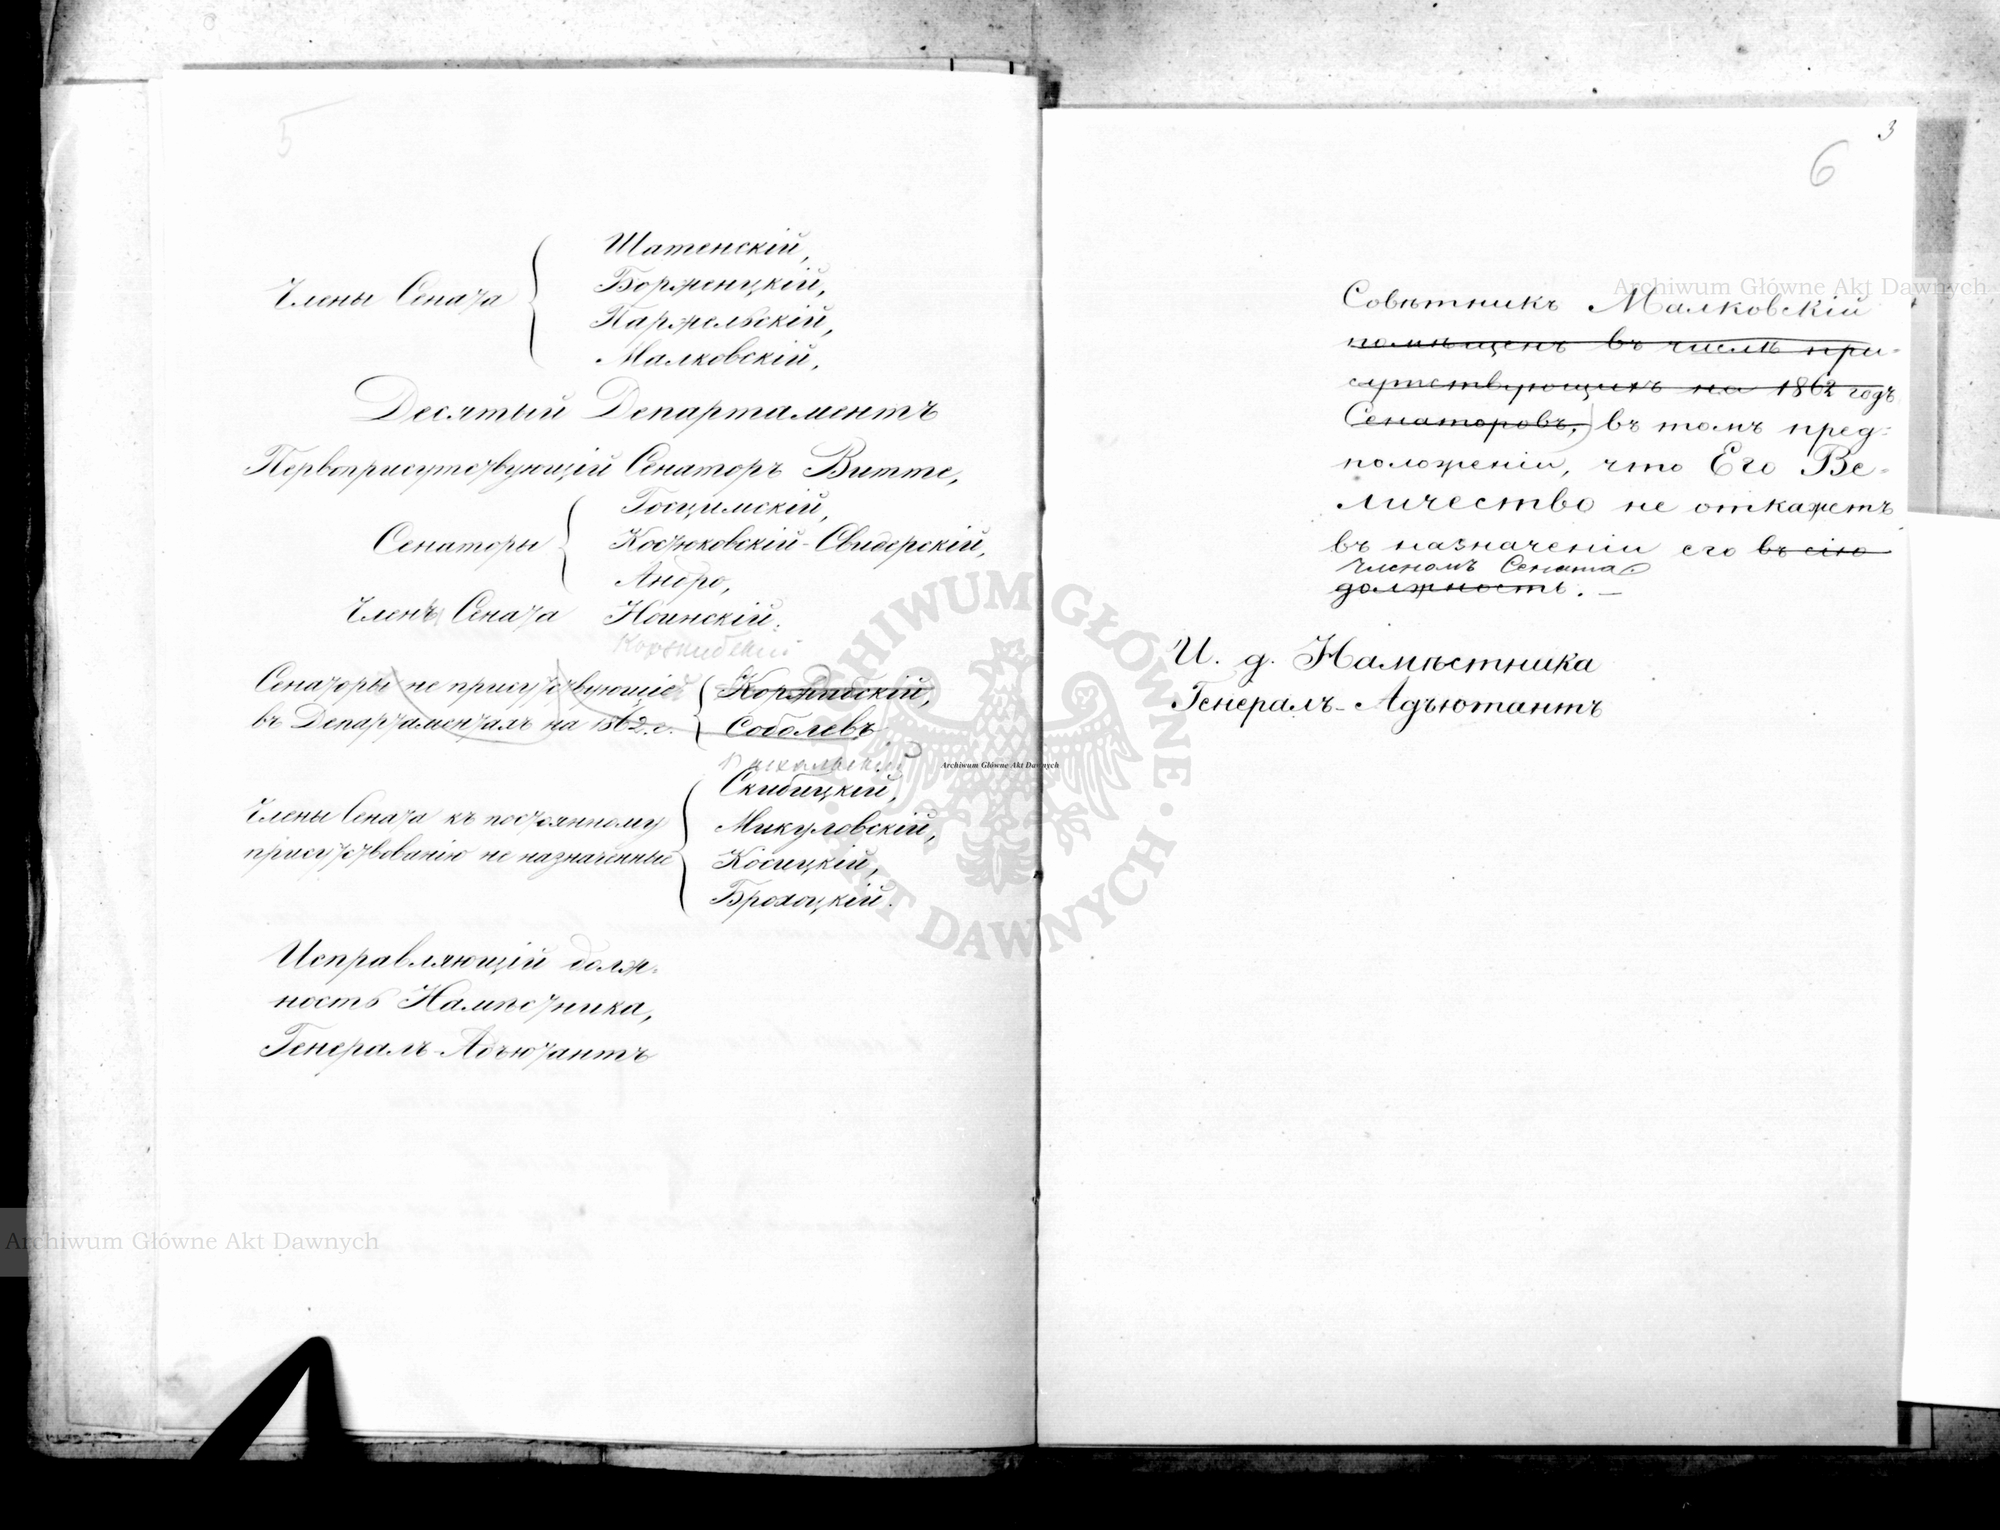 5
Члены Сената
Шатенскій,
Борженцкій,
Паржельскій,
Малковскій,
Десятый Департаментъ
Первоприсутствующій Сенаторъ Витте,
Сенаторы
Госцимскій,
Костюковскій-Свидерскій,
Андро,
Членъ Сената Ноинскій.
Сенаторы не присутствующіе
въ Департаментахъ на 1862 г.
Соболевъ
Члены Сената къ постоянному
присутствованію не назначенные
Скибицкій,
Микуловскій,
Косицкій,
Брохоцкій.
Исправляющій долж-
ность Намѣстника,
Генералъ-Адъютантъ
3
6
Совѣтникъ Малковскій
помѣщенъ въ числѣ при-
сутствующихъ на 1862 годъ
Сенаторовъ, въ томъ пред-
положеніи, что Его Ве-
личество не откажетъ
въ назначеніи его въ сію
членомъ Сената
должность.
И. д. Намѣстника
Генералъ-Адъютантъ
Archiwum Główne Akt Dawnych
Archiwum Główne Akt Dawnych
Archiwum Główne Akt Dawnych
ARCHIWUM GŁÓWNE AKT DAWNYCH